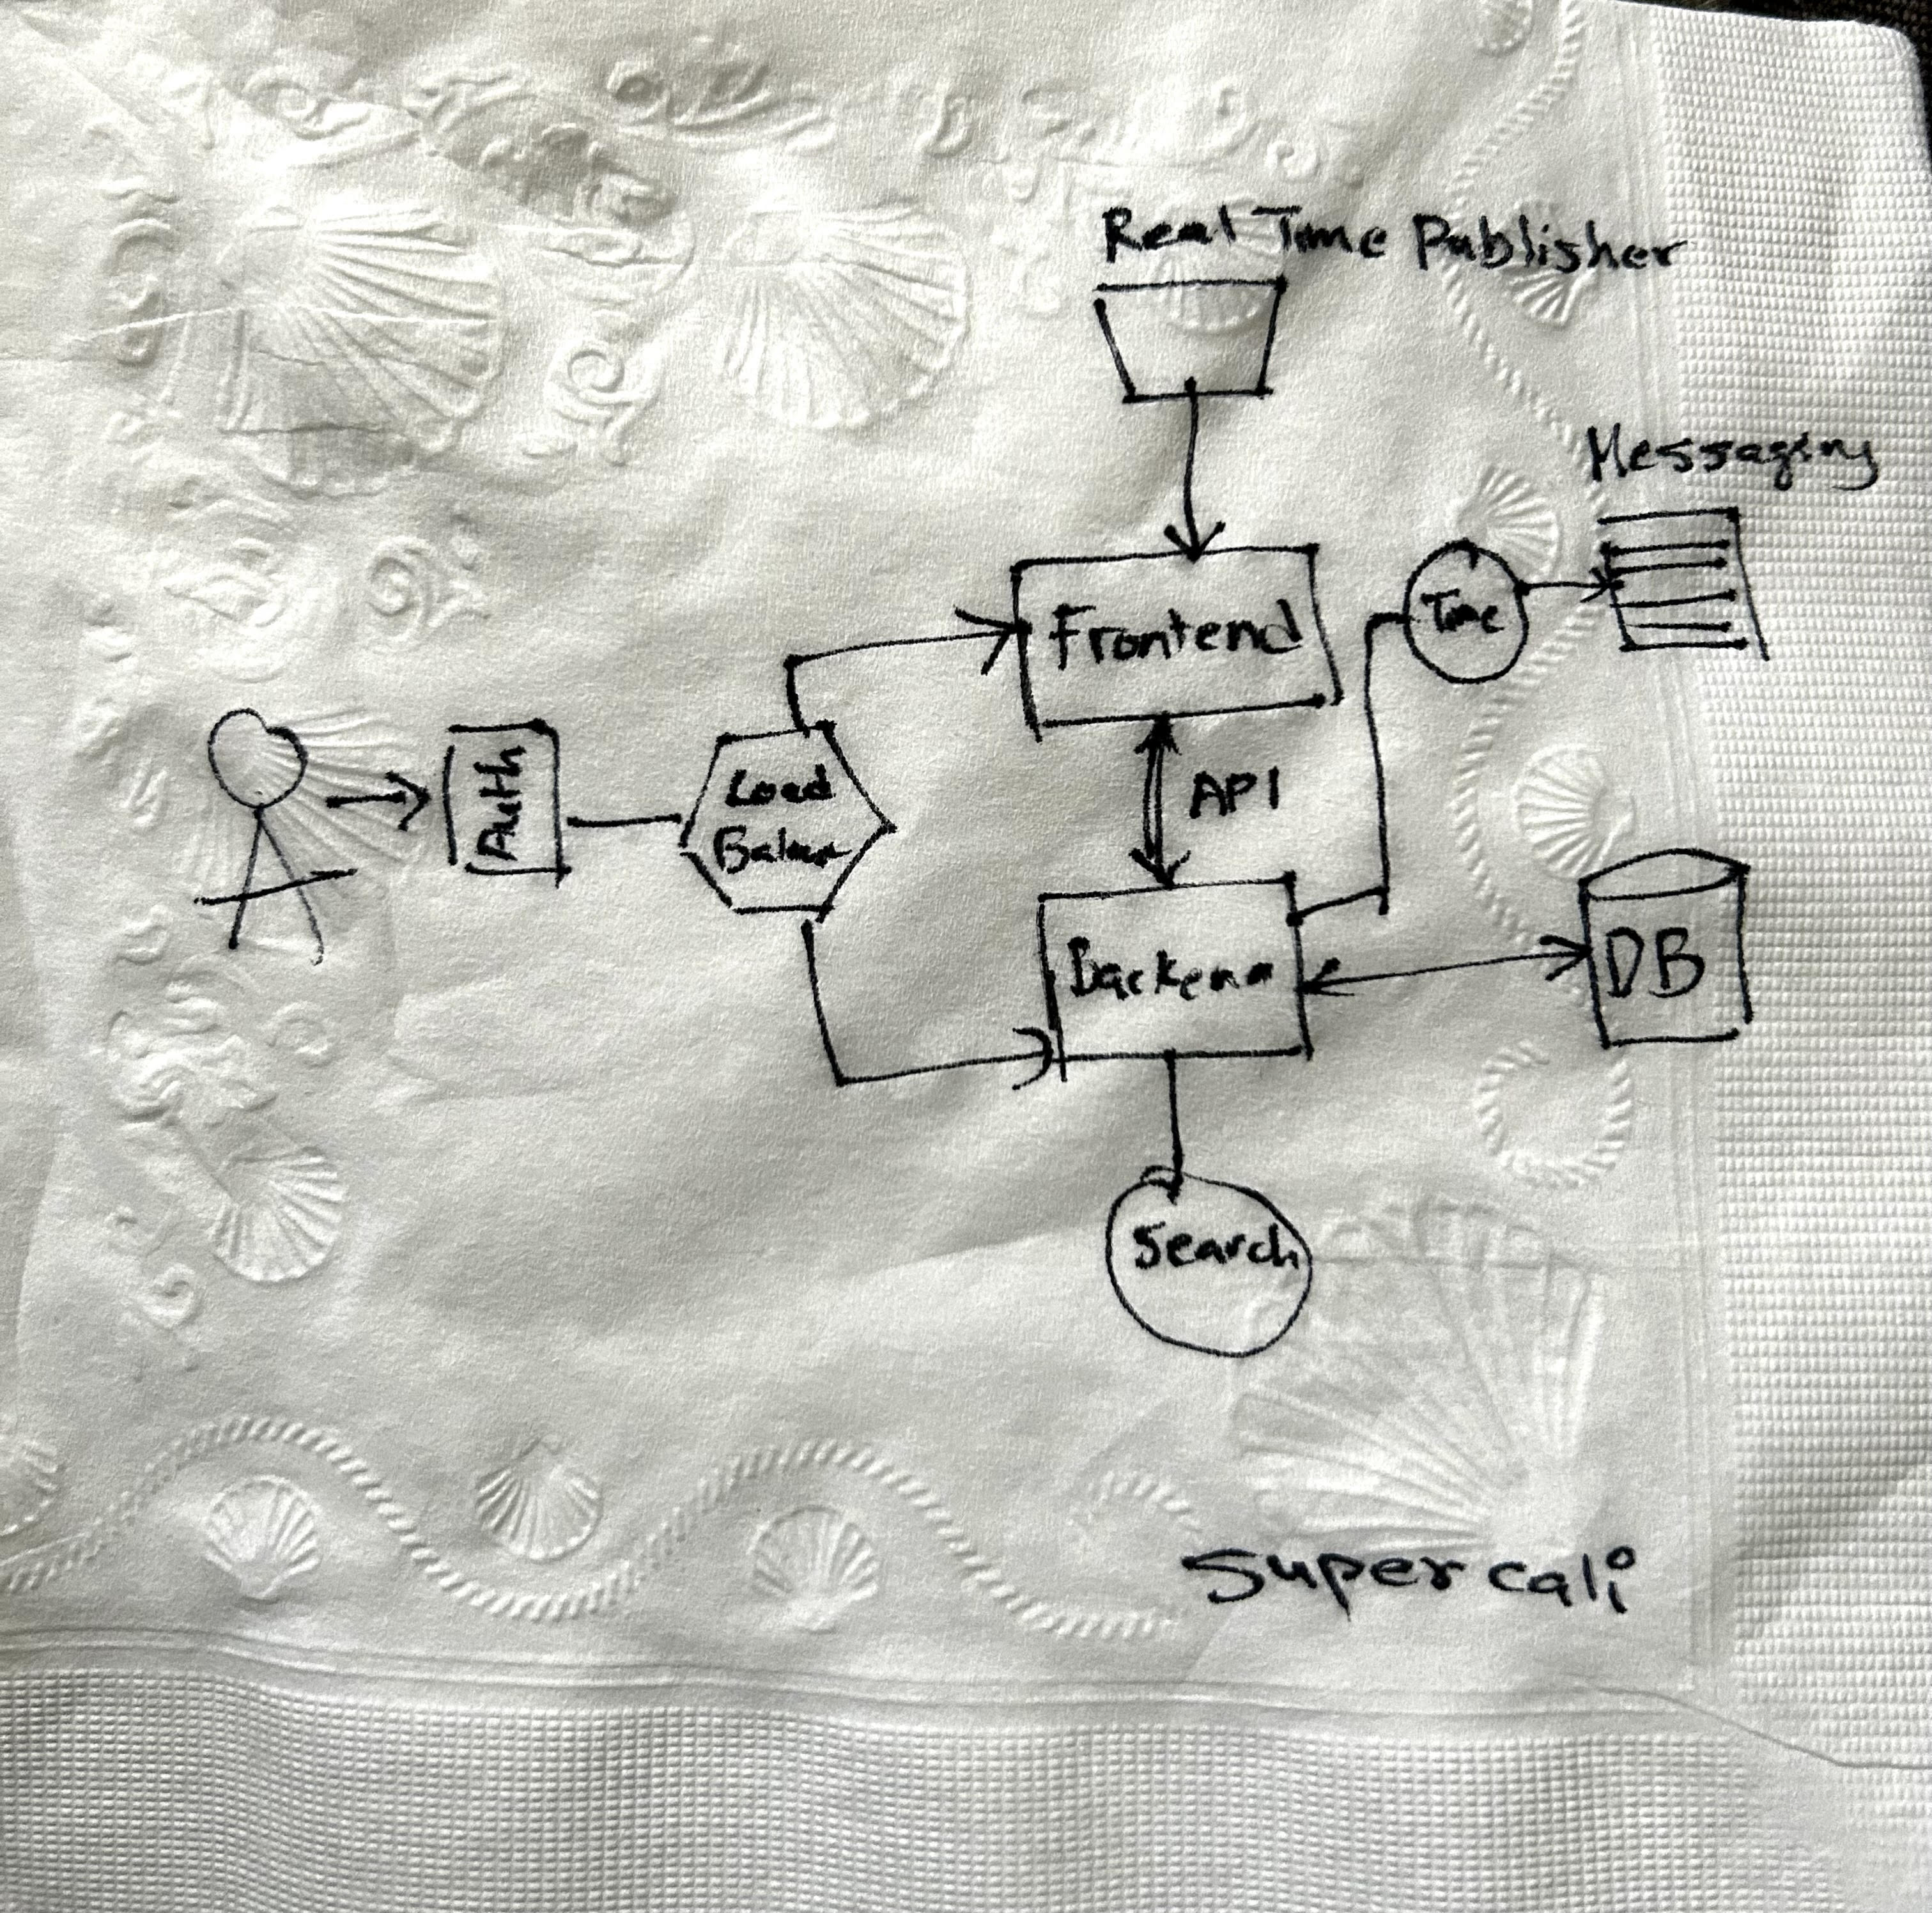 Real Time Publisher
Messaging
Frontend
Time
Auth
Load
API
DB
Search
Supercali